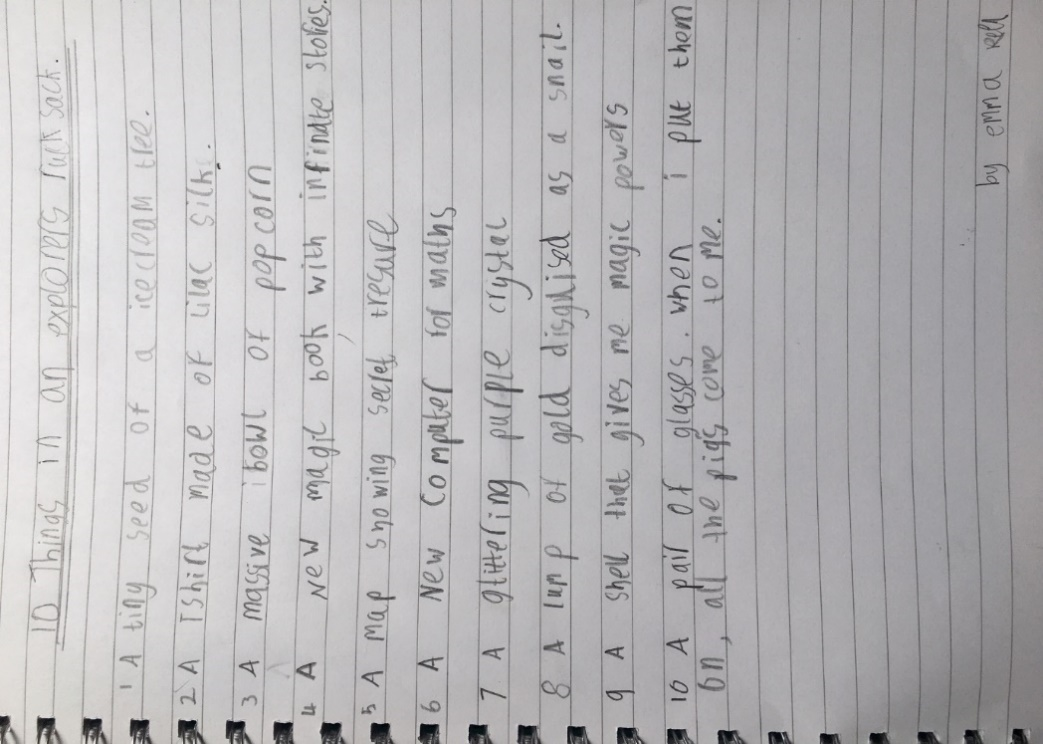 10 Things in an explorers ruck sack.
1 A tiny seed of a icecream tree.
2 A Tshirt made of lilac silk.
3 A massive bowl of popcorn
4 A New magic book with infinate stories.
5 A map showing secret tresure
6 A New Computer for maths
7 A glittering purple crystal
8 A lump of gold disguised as a snail.
9 A shell that gives me magic powers
10 A pair of glasses. when i put them
on, all the pigs come to me.
by emma